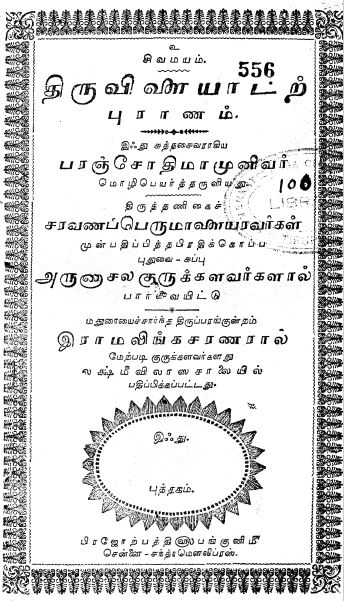 உ
சிவமயம்.
556
திருவிளையாடற்
புராணம்.
இஃது சுத்தசைவராகிய
பரஞ்சோதிமாமுனிவர்
மொழிபெயர்த்தருளியது.
100
திருத்தணிகைச்
சரவணப்பெருமாளையரவர்கள்
முன்பதிப்பித்தபிரதிக்கொப்ப
புதுவை - சுப்பு
அருணாசலகுருக்களவர்களால்
பார்வையிட்டு
மதுரையைச்சார்ந்த திருப்பரங்குன்றம்
இராமலிங்கசரணரால்
மேற்படி குருக்களவர்களது
லக்ஷ்மீவிலாஸசாலையில்
பதிப்பிக்கப்பட்டது.
இஃது.
புத்தகம்.
பிரஜோற்பத்தி௵பங்குனி௴
சென்னை - சக்ரமௌலிப்ரஸ்.